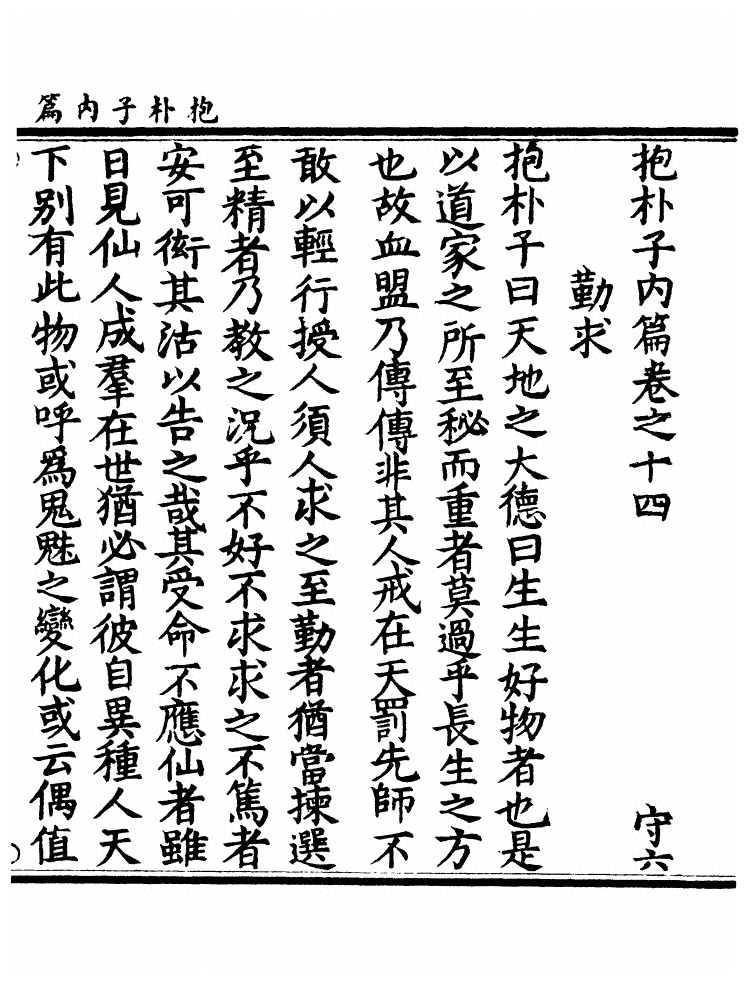 抱朴子内篇
抱朴子内篇卷之十四 守六
勤求
抱朴子曰天地之大德曰生生好物者也是
以道家之所至秘而重者莫過乎長生之方
也故血盟乃傳傳非其人戒在天罰先師不
敢以輕行授人須人求之至勤者猶當揀選
至精者乃教之況乎不好不求求之不篤者
安可衒其沽以告之哉其受命不應仙者雖
日見仙人成羣在世猶必謂彼自異種人天
下別有此物或呼爲鬼魅之變化或云偶值